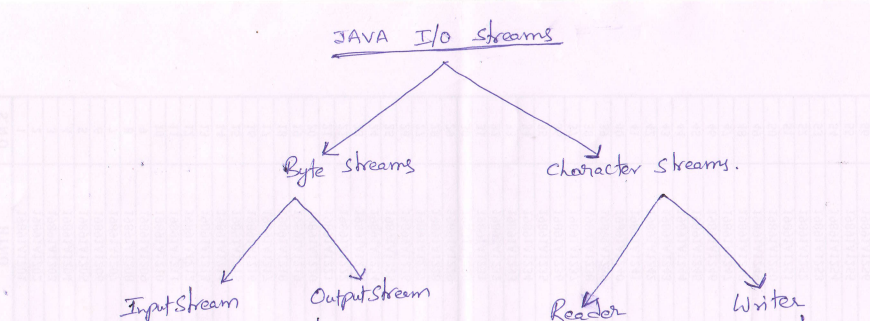 JAVA I/O Streams
Byte Streams
Character Streams.
InputStream
OutputStream
Reader
Writer